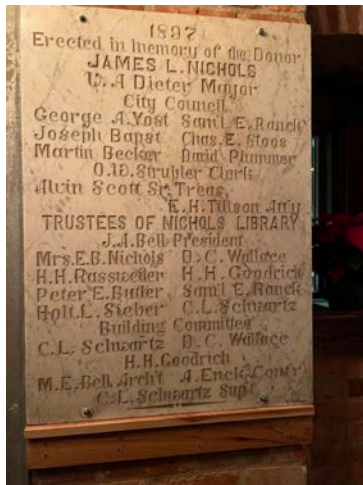 1897
Erected in memory of the Donor
JAMES L. NICHOLS
W. A Dieter Mayor
City Council
George A. Yost Sam'l E. Ranck
Joseph Bapst Chas. E. Stoos
Martin Becker David Plummer
O. W. Strubler Clerk
Alvin Scott Sr. Treas.
E. H. Tillson Att'y
TRUSTEES OF NICHOLS LIBRARY
J. A. Bell President
Mrs. E. B. Nichols D. C. Wallace
H. H. Rassweiler H. H. Goodrich
Peter E. Butler Sam'l E. Ranck
Holt L. Sieber C. L. Schwartz
Building Committee
C. L. Schwartz D. C. Wallace
H. H. Goodrich
M. E. Bell Arch't A. Enck Cont'r
C. L. Schwartz Sup't